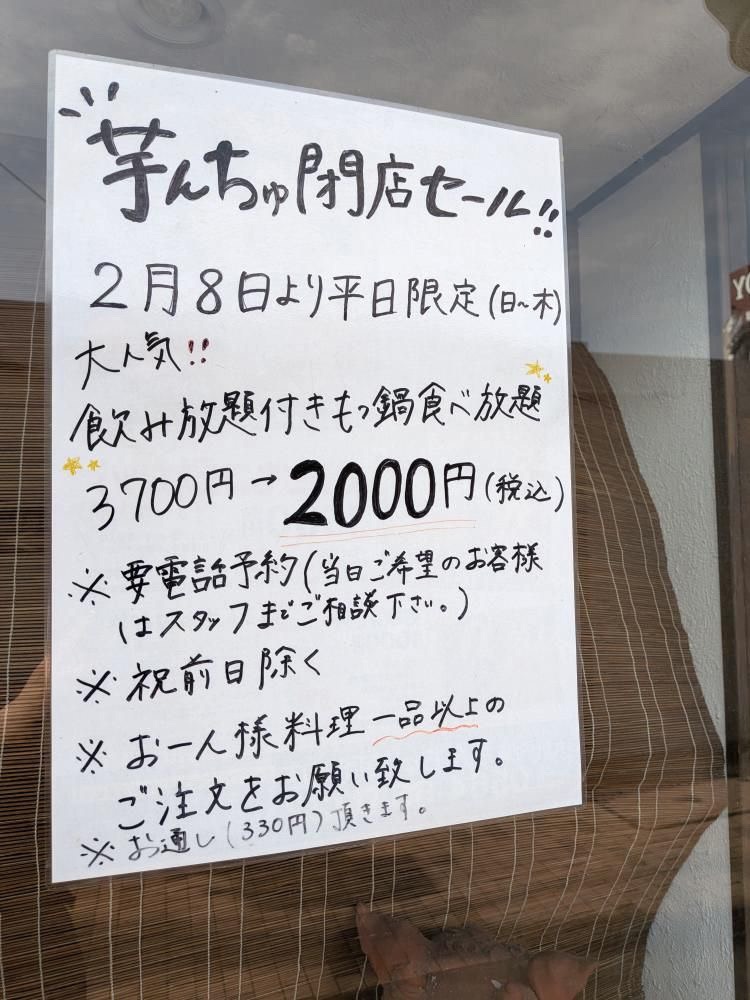 芋んちゅ閉店セール!!
2月8日より平日限定(日~木)
大人気!!
飲み放題付きもつ鍋食べ放題
3700円→2000円(税込)
※要電話予約(当日ご希望のお客様
はスタッフまでご相談下さい。)
※祝前日除く
※お一人様料理一品以上の
ご注文をお願い致します。
※お通し(330円)頂きます。
YO